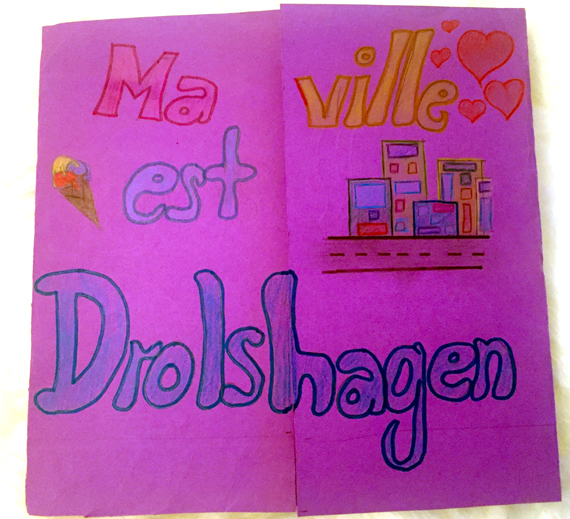 Ma ville
est
Drolshagen